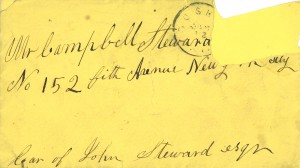 Mr Campbell Steward
No 152 fith Avenue New
Car of John Steward esqr